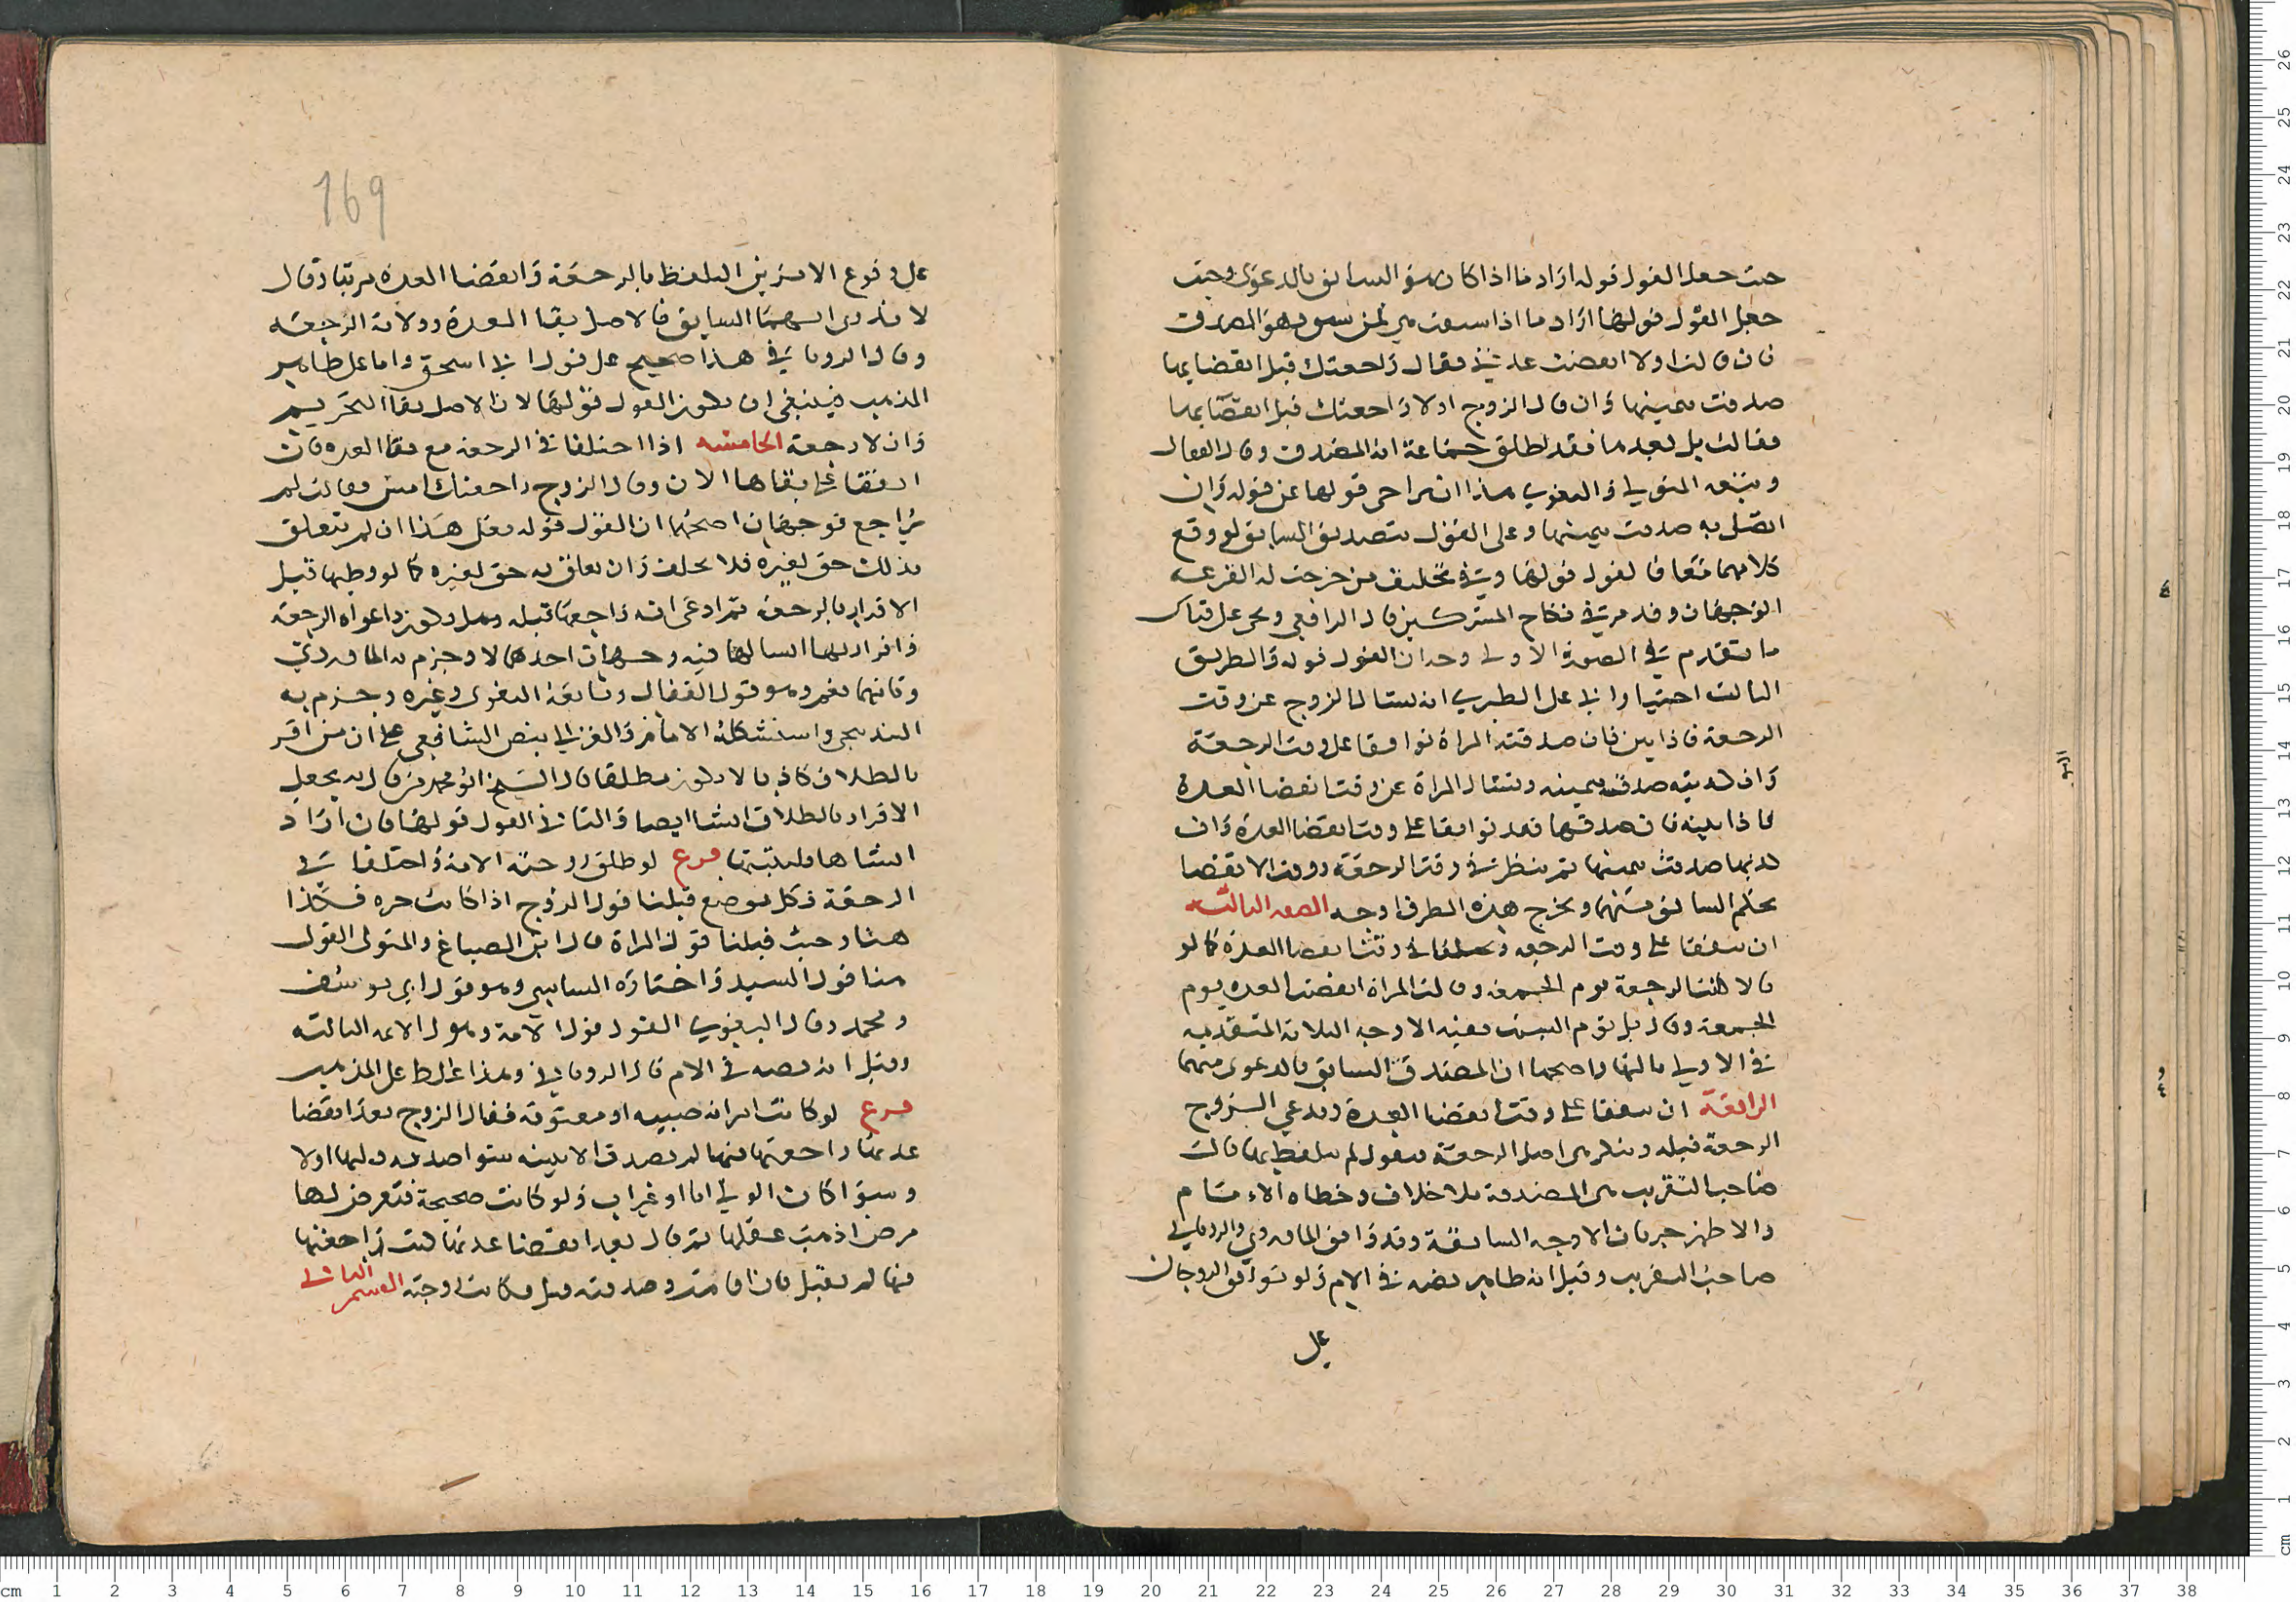 حيث جعل القول قوله اراد ما اذا كان هو السابق بالدعوى وحيث
جعل القول قولها اراد ما اذا سبقت هي فمن سبق فهو المصدق
فان قالت اولا انقضت عدتي فقال راجعتك قبل انقضايها
صدقت بيمينها وان قال الزوج اولا راجعتك قبل انقضايها
فقالت بل بعدها فقد اطلق جماعة انه المصدق وقال القفال
وتبعه المتولي والبغوي هذا ان تراخى قولها عن قوله وان
اتصل به صدقت بيمينها وعلى القول بتصديق السابق لو وقع
كلامهما معا فالقول قولها وفي تحليف من خرجت له القرعة
الوجهان وقد مر في نكاح المشركين قال الرافعي ويجي على قياس
ما تقدم في الصورة الاولى وجه ان القول قوله والطريق
الثالث اختيار ابي علي الطبري انه يسال الزوج عن وقت
الرجعة فاذا بين فان صدقته المراة توافقا على وقت الرجعة
وان كذبته صدق بيمينه وتسال المراة عن وقت انقضا العدة
فاذا بينته فان صدقها فقد توافقا على وقت انقضا العدة وان
كذبها صدقت بيمينها ثم ينظر في وقت الرجعة ووقت الانقضا
بحكم السابق منهما ويخرج هذه الطرق اوجه الصورة الثالثة
ان يتفقا على وقت الرجعة ويختلفا في وقت انقضا العدة كما لو
قالا كانت الرجعة يوم الجمعة وقالت المراة انقضت العدة يوم
الجمعة وقال بل يوم السبت ففيه الاوجه الثلاثة المتقدمة
في الاولى ثالثها واصحها ان المصدق السابق بالدعوى منهما
الرابعة ان يتفقا على وقت انقضا العدة ويدعي الزوج
الرجعة قبله وتنكر هي اصل الرجعة فيقول لم يتلفظ بها قال
صاحب التقريب هي المصدقة بلا خلاف وخطاه الامام
والاظهر جريان الاوجه السابقة وقد وافق الماوردي والروياني
صاحب التقريب وقيل انه ظاهر نصه في الام ولو توافق الزوجان
على
169
على وقوع الامرين التلفظ بالرجعة وانقضا العدة مرتبا وقال
لا ندري ايهما السابق فالاصل بقا العدة وولاية الرجعة
وقال الروياني هذا صحيح على قول ابي اسحق واما على ظاهر
المذهب فينبغي ان يكون القول قولها لان الاصل بقا التحريم
وان لا رجعة الخامسة اذا اختلفا في الرجعة مع بقا العدة فان
اتفقا على بقاها الان وقال الزوج راجعتك امس وقالت لم
تراجع فوجهان اصحهما ان القول قوله فعلى هذا ان لم يتعلق
بذلك حق لغيره فلا يحلف وان تعلق به حق لغيره كما لو وطيها قبل
الاقرار بالرجعة ثم ادعى انه راجعها قبله وهل يكون دعواه الرجعة
واقراره بها انشا لها فيه وجهان احدهما لا وجزم به الماوردي
وثانيهما نعم وهو قول القفال وتابعه البغوي وغيره وجزم به
البندنيجي واستشكله الامام والغزالي بنص الشافعي على ان من اقر
بالطلاق كاذبا لا يكون مطلقا قال الشيخ ابو محمد من قال به يجعل
الاقرار بالطلاق انشا ايضا والثاني القول قولها فان اراد
انشاها فلينشها فرع لو طلق زوجته الامة واختلفا في
الرجعة فكل موضع قبلنا قول الزوج اذا كانت حرة فكذا
هنا وحيث قبلنا قول المراة قال ابن الصباغ والمتولي القول
هنا قول السيد واختاره الشاشي وهو قول ابي يوسف
ومحمد وقال البغوي القول قول الامة وهو قول الايمة الثالثة
وقيل انه نصه في الام قال الروياني وهذا غلط على المذهب
فرع لو كانت امراته صبية او معتوهة فقال الزوج بعد انقضا
عدتها راجعتها فيها لم يصدق الا ببينة سوا صدقه وليها او لا
وسوا كان الولي ابا او غير اب ولو كانت صحيحة فتعرض لها
مرض اذهب عقلها ثم قال بعد انقضا عدتها كنت راجعتها
فيها لم يقبل فان افاقت وصدقته قبل وكانت زوجته القسم الثاني